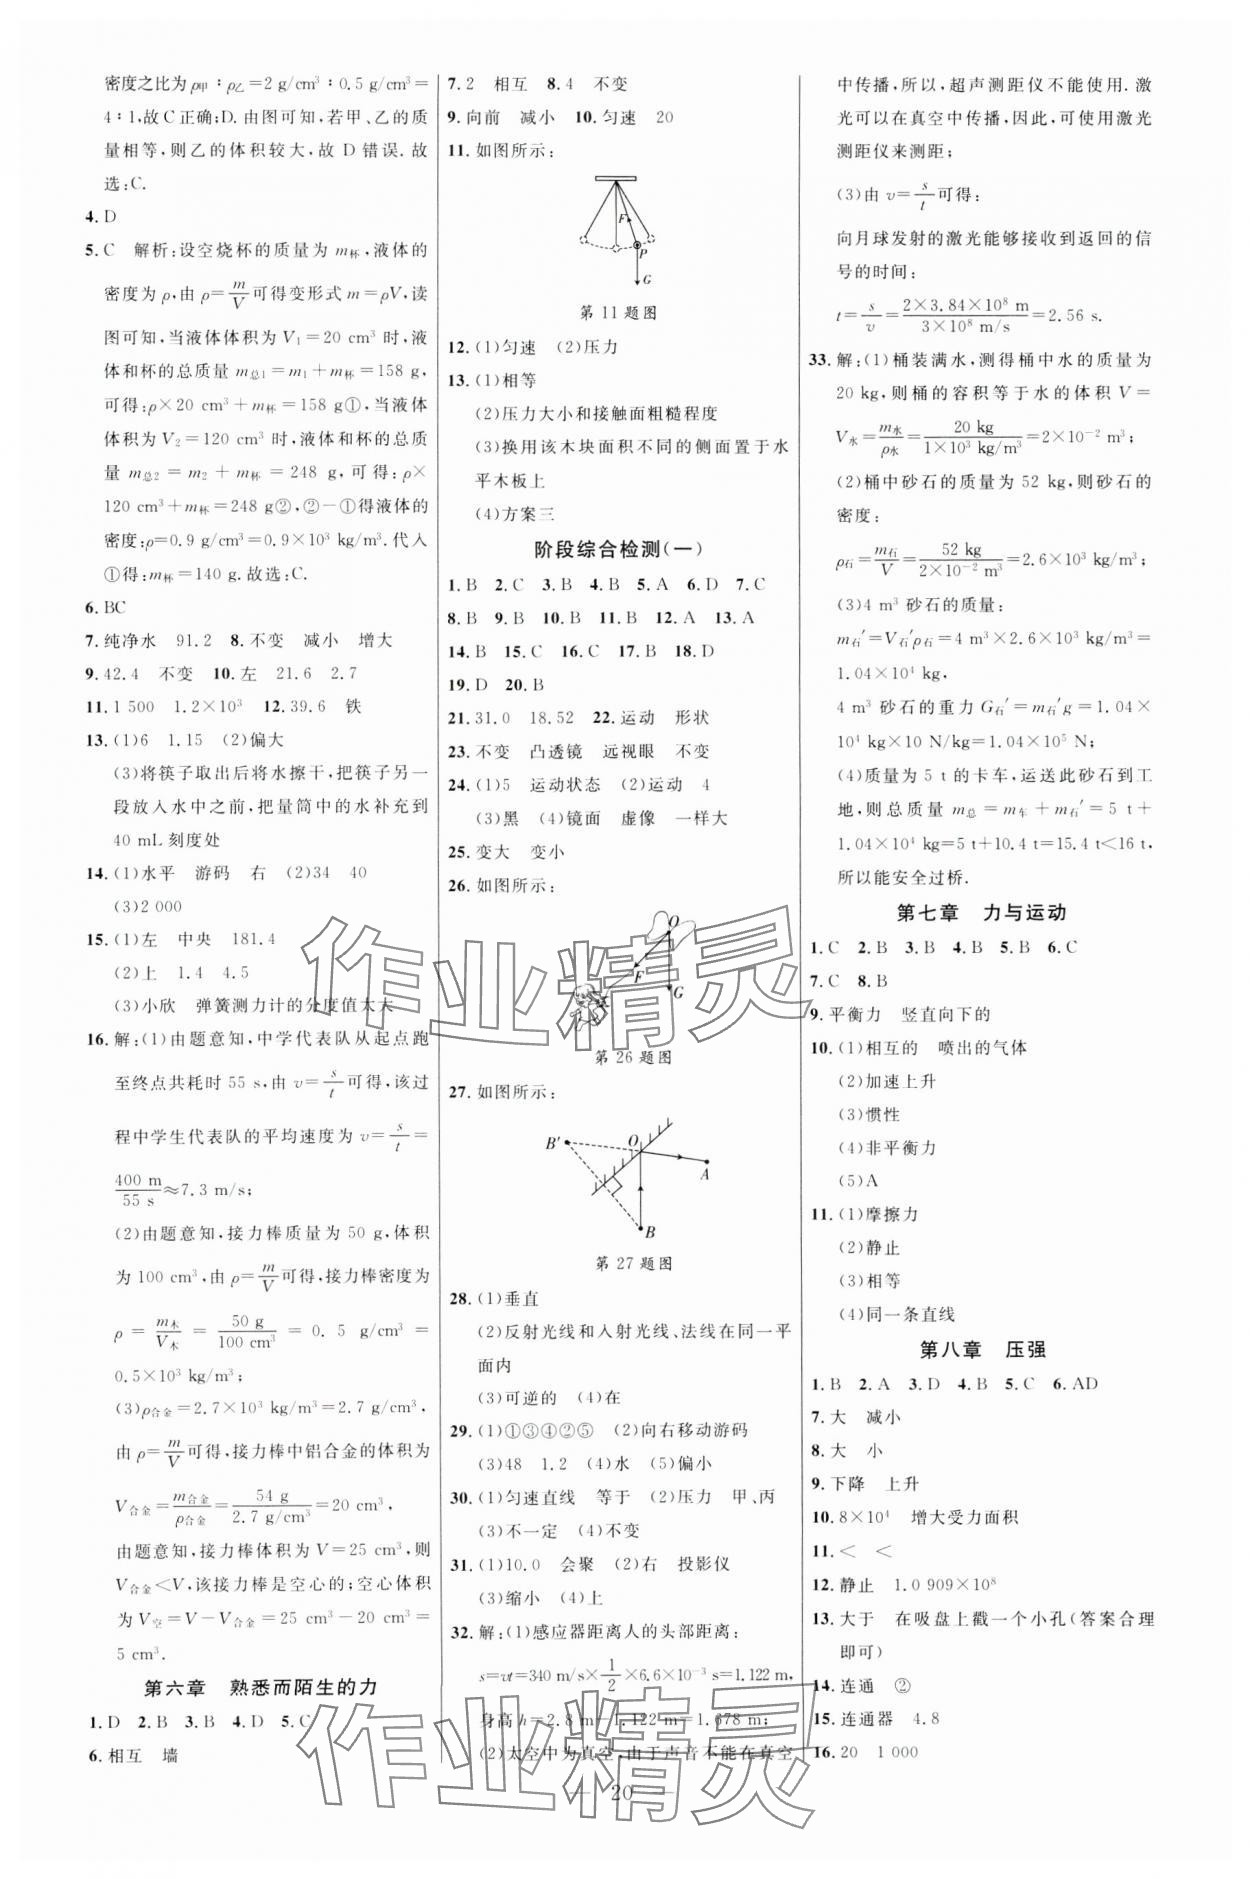 密度之比为 ρ甲∶ρ乙=2 g/cm³∶0.5 g/cm³=
4∶1,故C正确;D. 由图可知,若甲、乙的质
量相等,则乙的体积较大,故 D 错误. 故
选:C.
4. D
5. C 解析:设空烧杯的质量为 m杯,液体的
密度为 ρ,由 ρ=m/V 可得变形式 m=ρV,读
图可知,当液体体积为 V₁=20 cm³ 时,液
体和杯的总质量 m总1=m₁+m杯=158 g,
可得:ρ×20 cm³+m杯=158 g①,当液体
体积为 V₂=120 cm³ 时,液体和杯的总质
量 m总2=m₂+m杯=248 g,可得:ρ×
120 cm³+m杯=248 g②,②-①得液体的
密度:ρ=0.9 g/cm³=0.9×10³ kg/m³. 代入
①得:m杯=140 g. 故选:C.
6. BC
7. 纯净水 91.2 8. 不变 减小 增大
9. 42.4 不变 10. 左 21.6 2.7
11. 1 500 1.2×10³ 12. 39.6 铁
13. (1)6 1.15 (2)偏大
(3)将筷子取出后将水擦干,把筷子另一
段放入水中之前,把量筒中的水补充到
40 mL刻度处
14. (1)水平 游码 右 (2)34 40
(3)2 000
15. (1)左 中央 181.4
(2)上 1.4 4.5
(3)小欣 弹簧测力计的分度值太大
16. 解:(1)由题意知,中学代表队从起点跑
至终点共耗时 55 s,由 v=s/t 可得,该过
程中学生代表队的平均速度为 v=s/t=
400 m/55 s≈7.3 m/s;
(2)由题意知,接力棒质量为 50 g,体积
为 100 cm³,由 ρ=m/V 可得,接力棒密度为
ρ=m木/V木=50 g/100 cm³=0.5 g/cm³=
0.5×10³ kg/m³;
(3)ρ合金=2.7×10³ kg/m³=2.7 g/cm³,
由 ρ=m/V 可得,接力棒中铝合金的体积为
V合金=m合金/ρ合金=54 g/2.7 g/cm³=20 cm³,
由题意知,接力棒体积为 V=25 cm³,则
V合金<V,该接力棒是空心的;空心体积
为 V空=V-V合金=25 cm³-20 cm³=
5 cm³.
第六章 熟悉而陌生的力
1. D 2. B 3. B 4. D 5. C
6. 相互 墙
7. 2 相互 8. 4 不变
9. 向前 减小 10. 匀速 20
11. 如图所示:
F
P
G
第 11 题图
12. (1)匀速 (2)压力
13. (1)相等
(2)压力大小和接触面粗糙程度
(3)换用该木块面积不同的侧面置于水
平木板上
(4)方案三
阶段综合检测(一)
1. B 2. C 3. B 4. B 5. A 6. D 7. C
8. B 9. B 10. B 11. B 12. A 13. A
14. B 15. C 16. C 17. B 18. D
19. D 20. B
21. 31.0 18.52 22. 运动 形状
23. 不变 凸透镜 远视眼 不变
24. (1)5 运动状态 (2)运动 4
(3)黑 (4)镜面 虚像 一样大
25. 变大 变小
26. 如图所示:
O
F
G
第 26 题图
27. 如图所示:
B′ O
A
B
第 27 题图
28. (1)垂直
(2)反射光线和入射光线、法线在同一平
面内
(3)可逆的 (4)在
29. (1)①③④②⑤ (2)向右移动游码
(3)48 1.2 (4)水 (5)偏小
30. (1)匀速直线 等于 (2)压力 甲、丙
(3)不一定 (4)不变
31. (1)10.0 会聚 (2)右 投影仪
(3)缩小 (4)上
32. 解:(1)感应器距离人的头部距离:
s=vt=340 m/s×1/2×6.6×10⁻³ s=1.122 m,
身高 h=2.8 m-1.122 m=1.678 m;
(2)太空中为真空,由于声音不能在真空
中传播,所以,超声测距仪不能使用. 激
光可以在真空中传播,因此,可使用激光
测距仪来测距;
(3)由 v=s/t 可得:
向月球发射的激光能够接收到返回的信
号的时间:
t=s/v=2×3.84×10⁸ m/3×10⁸ m/s=2.56 s.
33. 解:(1)桶装满水,测得桶中水的质量为
20 kg,则桶的容积等于水的体积 V=
V水=m水/ρ水=20 kg/1×10³ kg/m³=2×10⁻² m³;
(2)桶中砂石的质量为 52 kg,则砂石的
密度:
ρ石=m石/V=52 kg/2×10⁻² m³=2.6×10³ kg/m³;
(3)4 m³ 砂石的质量:
m石′=V石′ρ石=4 m³×2.6×10³ kg/m³=
1.04×10⁴ kg,
4 m³ 砂石的重力 G石′=m石′g=1.04×
10⁴ kg×10 N/kg=1.04×10⁵ N;
(4)质量为 5 t 的卡车,运送此砂石到工
地,则总质量 m总=m车+m石′=5 t+
1.04×10⁴ kg=5 t+10.4 t=15.4 t<16 t,
所以能安全过桥.
第七章 力与运动
1. C 2. B 3. B 4. B 5. B 6. C
7. C 8. B
9. 平衡力 竖直向下的
10. (1)相互的 喷出的气体
(2)加速上升
(3)惯性
(4)非平衡力
(5)A
11. (1)摩擦力
(2)静止
(3)相等
(4)同一条直线
第八章 压强
1. B 2. A 3. D 4. B 5. C 6. AD
7. 大 减小
8. 大 小
9. 下降 上升
10. 8×10⁴ 增大受力面积
11. < <
12. 静止 1.0 909×10⁸
13. 大于 在吸盘上戳一个小孔(答案合理
即可)
14. 连通 ②
15. 连通器 4.8
16. 20 1 000
— 20 —
作业精灵
作业精灵